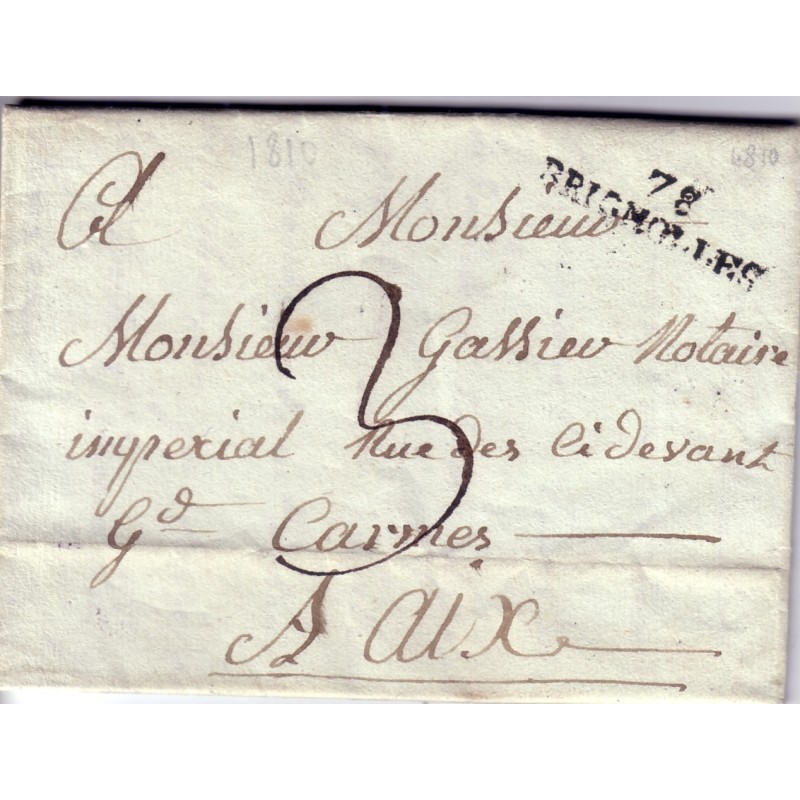 1810
1810
78
BRIGNOLLES
A Monsieur
Monsieur Gassier Notaire
imperial Rue des Cidevant
Gd Carmes
3
A Aix